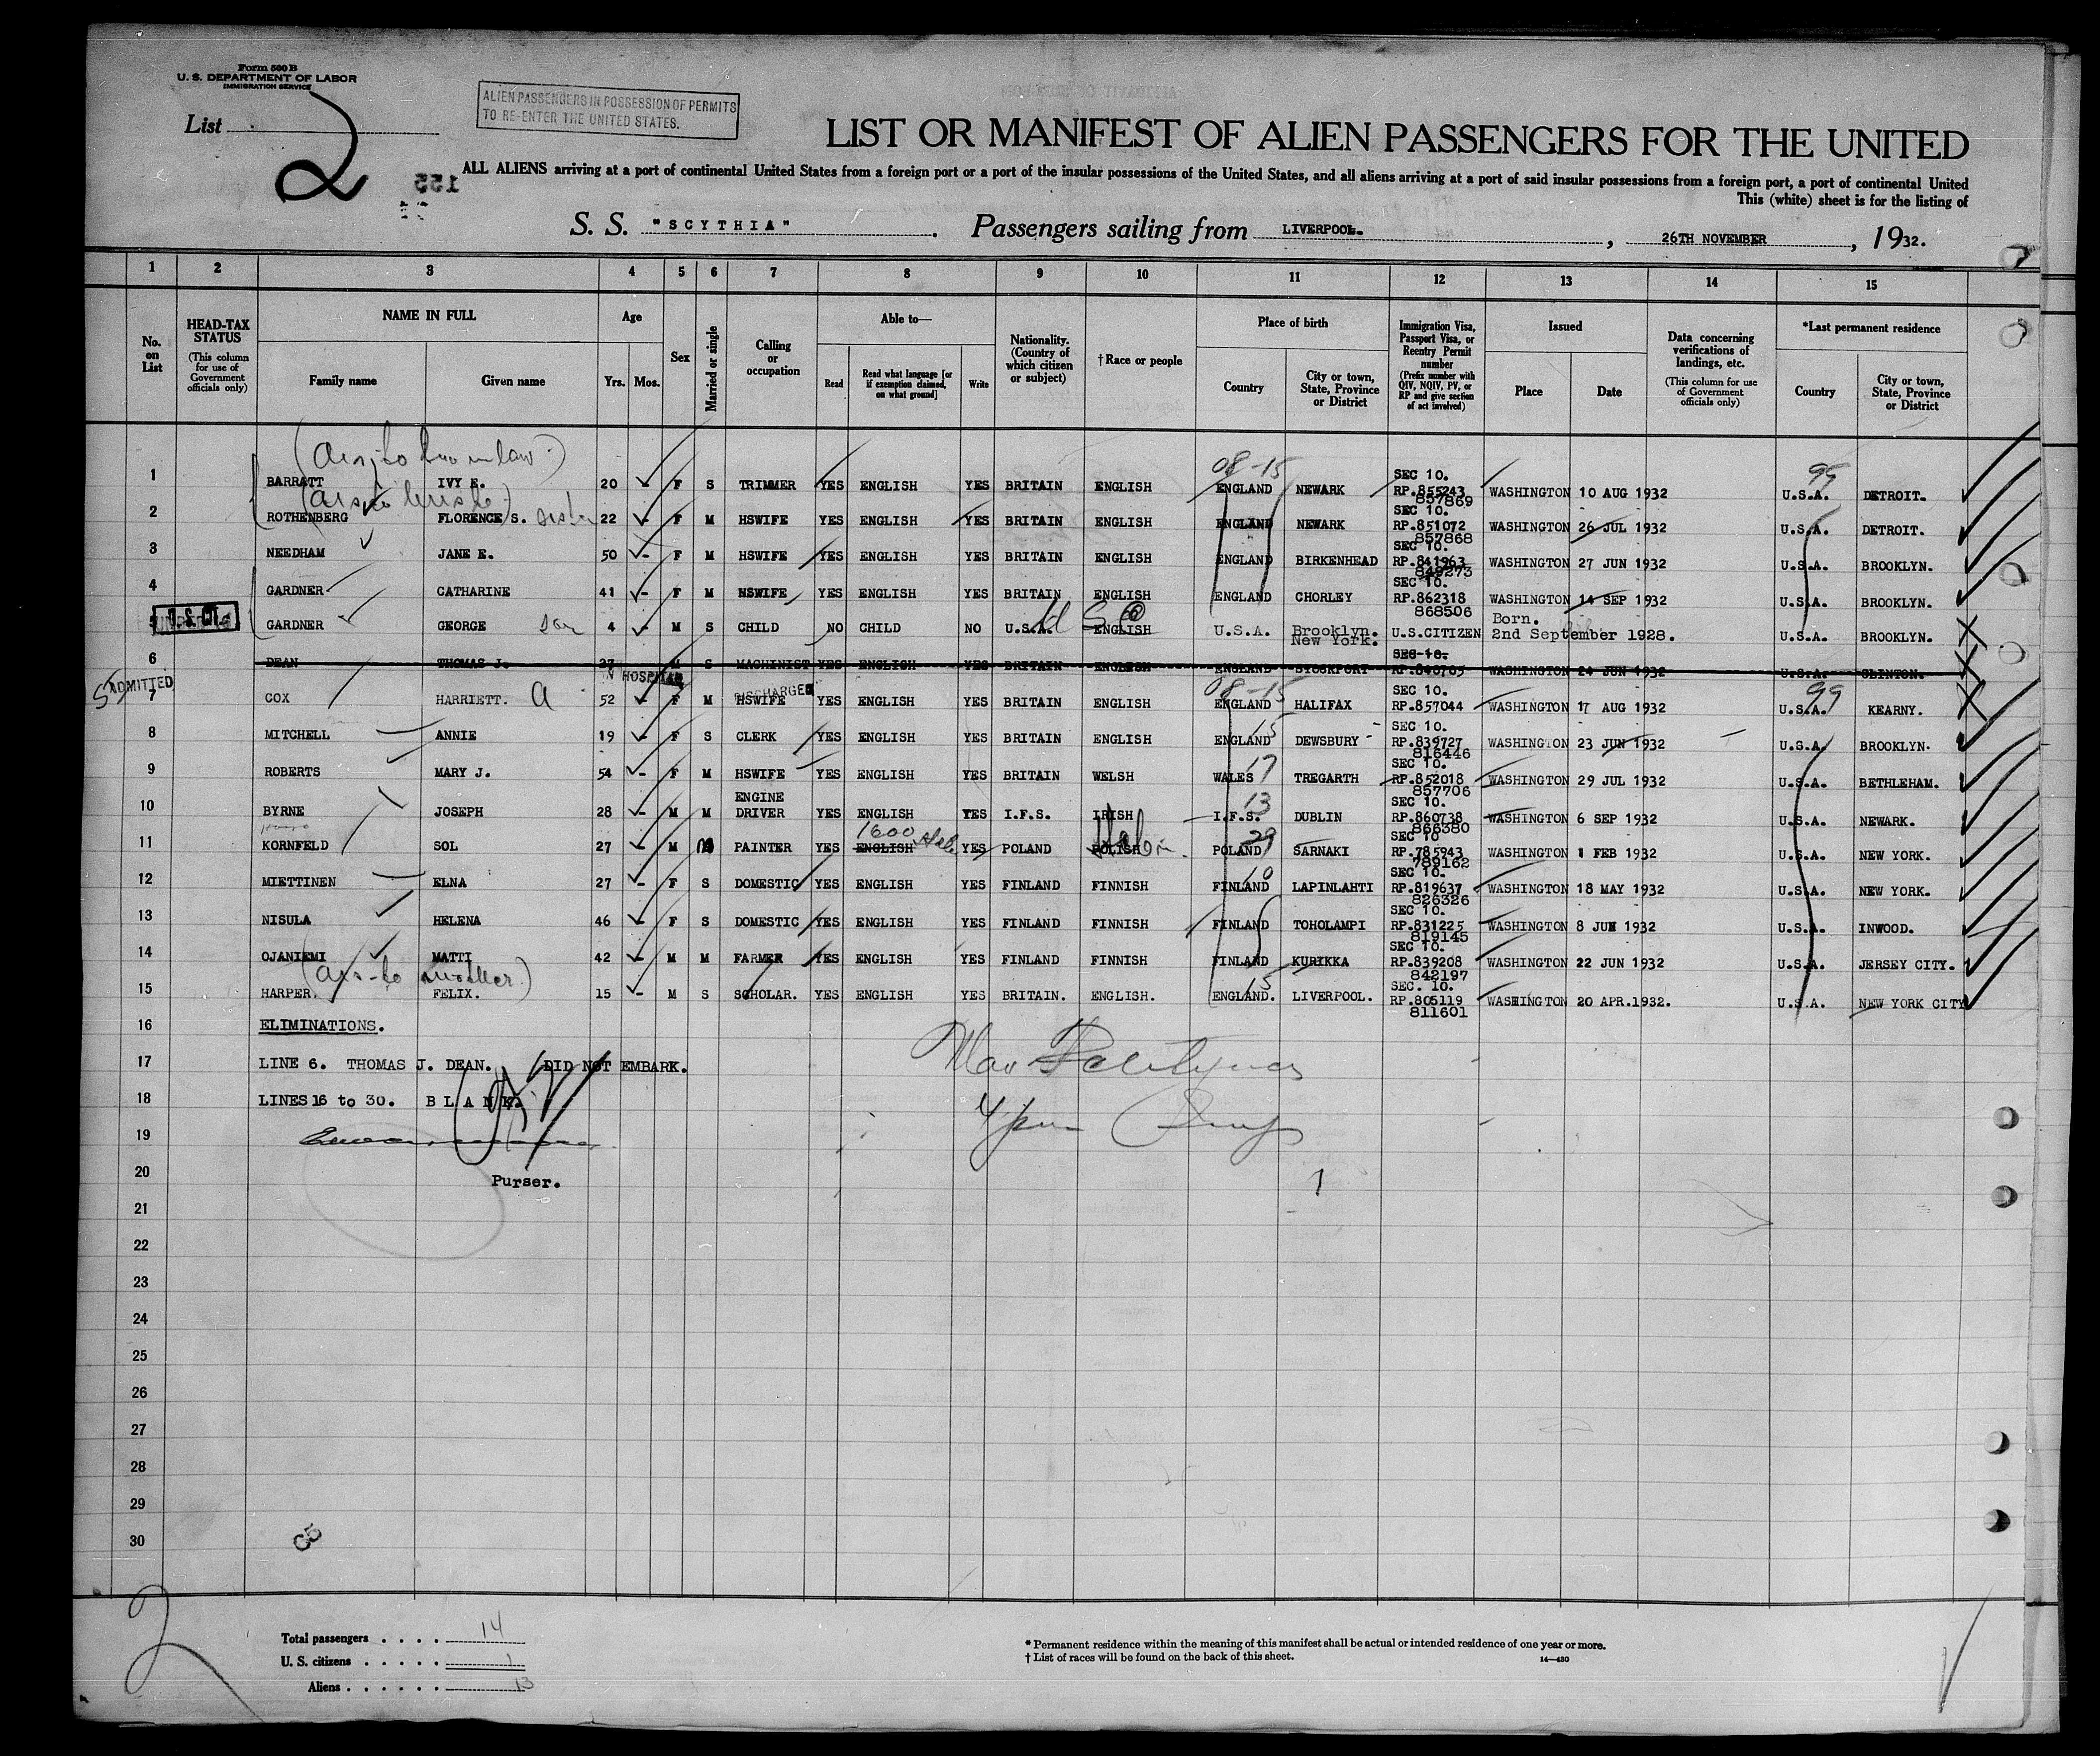 Form 500 B
U. S. DEPARTMENT OF LABOR
IMMIGRATION SERVICE
List 2
ALIEN PASSENGERS IN POSSESSION OF PERMITS
TO RE-ENTER THE UNITED STATES.
155
LIST OR MANIFEST OF ALIEN PASSENGERS FOR THE UNITED
ALL ALIENS arriving at a port of continental United States from a foreign port or a port of the insular possessions of the United States, and all aliens arriving at a port of said insular possessions from a foreign port, a port of continental United
This (white) sheet is for the listing of
S. S. "SCYTHIA" . Passengers sailing from LIVERPOOL. , 26TH NOVEMBER , 1932.
1 2 3 4 5 6 7 8 9 10 11 12 13 14 15
No. on List
HEAD-TAX STATUS (This column for use of Government officials only)
NAME IN FULL Family name Given name
Age Yrs. Mos.
Sex
Married or single
Calling or occupation
Able to— Read Read what language [or if exemption claimed, on what ground] Write
Nationality. (Country of which citizen or subject)
† Race or people
Place of birth Country City or town, State, Province or District
Immigration Visa, Passport Visa, or Reentry Permit number (Prefix number with QIV, NQIV, PV, or RP and give section of act involved)
Issued Place Date
Data concerning verifications of landings, etc. (This column for use of Government officials only)
*Last permanent residence Country City or town, State, Province or District
08-15 99
1 BARRATT IVY E. 20 - F S TRIMMER YES ENGLISH YES BRITAIN ENGLISH ENGLAND NEWARK SEC 10. RP.855243 857869 WASHINGTON 10 AUG 1932 U.S.A. DETROIT.
2 ROTHENBERG FLORENCE S. sister 22 - F M HSWIFE YES ENGLISH YES BRITAIN ENGLISH ENGLAND NEWARK SEC 10. RP.851072 857868 WASHINGTON 26 JUL 1932 U.S.A. DETROIT.
3 NEEDHAM JANE E. 50 - F M HSWIFE YES ENGLISH YES BRITAIN ENGLISH ENGLAND BIRKENHEAD SEC 10. RP.841963 849273 WASHINGTON 27 JUN 1932 U.S.A. BROOKLYN.
4 GARDNER CATHARINE 41 - F M HSWIFE YES ENGLISH YES BRITAIN ENGLISH ENGLAND CHORLEY SEC 10. RP.862318 868506 WASHINGTON 14 SEP 1932 U.S.A. BROOKLYN.
5 GARDNER GEORGE son 4 - M S CHILD NO CHILD NO U.S.A. ENGLISH U S C U.S.A. Brooklyn. New York. U.S.CITIZEN Born. 2nd September 1928. U.S.A. BROOKLYN.
6 DEAN THOMAS J. 27 M S MACHINIST YES ENGLISH YES BRITAIN ENGLISH ENGLAND STOCKPORT SEC 10. RP.840705 WASHINGTON 24 JUN 1932 U.S.A. CLINTON.
ADMITTED HOSPITAL DISCHARGED 08-15 99
7 COX HARRIETT. a 52 - F M HSWIFE YES ENGLISH YES BRITAIN ENGLISH ENGLAND HALIFAX SEC 10. RP.857044 WASHINGTON 17 AUG 1932 U.S.A. KEARNY.
8 MITCHELL ANNIE 19 - F S CLERK YES ENGLISH YES BRITAIN ENGLISH ENGLAND 15 DEWSBURY SEC 10. RP.839727 816446 WASHINGTON 23 JUN 1932 U.S.A. BROOKLYN.
9 ROBERTS MARY J. 54 - F M HSWIFE YES ENGLISH YES BRITAIN WELSH WALES 17 TREGARTH SEC 10. RP.852018 857706 WASHINGTON 29 JUL 1932 U.S.A. BETHLEHAM.
10 BYRNE JOSEPH 28 - M M ENGINE DRIVER YES ENGLISH YES I.F.S. IRISH I.F.S. 13 DUBLIN SEC 10. RP.860738 866380 WASHINGTON 6 SEP 1932 U.S.A. NEWARK.
11 KORNFELD SOL 27 - M M PAINTER YES ENGLISH 1600 YES POLAND POLISH POLAND 29 SARNAKI SEC 10 RP.785943 789162 WASHINGTON 1 FEB 1932 U.S.A. NEW YORK.
12 MIETTINEN ELNA 27 - F S DOMESTIC YES ENGLISH YES FINLAND FINNISH FINLAND 10 LAPINLAHTI SEC 10. RP.819637 826326 WASHINGTON 18 MAY 1932 U.S.A. NEW YORK.
13 NISULA HELENA 46 - F S DOMESTIC YES ENGLISH YES FINLAND FINNISH FINLAND TOHOLAMPI SEC 10. RP.831225 819145 WASHINGTON 8 JUN 1932 U.S.A. INWOOD.
14 OJANIEMI MATTI 42 - M M FARMER YES ENGLISH YES FINLAND FINNISH FINLAND KURIKKA SEC 10. RP.839208 842197 WASHINGTON 22 JUN 1932 U.S.A. JERSEY CITY.
15 HARPER. FELIX. 15 - M S SCHOLAR. YES ENGLISH YES BRITAIN. ENGLISH. ENGLAND. 15 LIVERPOOL. SEC. 10. RP.805119 811601 WASHINGTON 20 APR.1932. U.S.A. NEW YORK CITY
16 ELIMINATIONS.
17 LINE 6. THOMAS J. DEAN. DID NOT EMBARK.
18 LINES 16 to 30. BLANK.
19
20 Purser.
21
22
23
24
25
26
27
28
29
30
Total passengers . . . . 14
U. S. citizens . . . . . 1
Aliens . . . . . . 13
* Permanent residence within the meaning of this manifest shall be actual or intended residence of one year or more.
† List of races will be found on the back of this sheet.
14—430